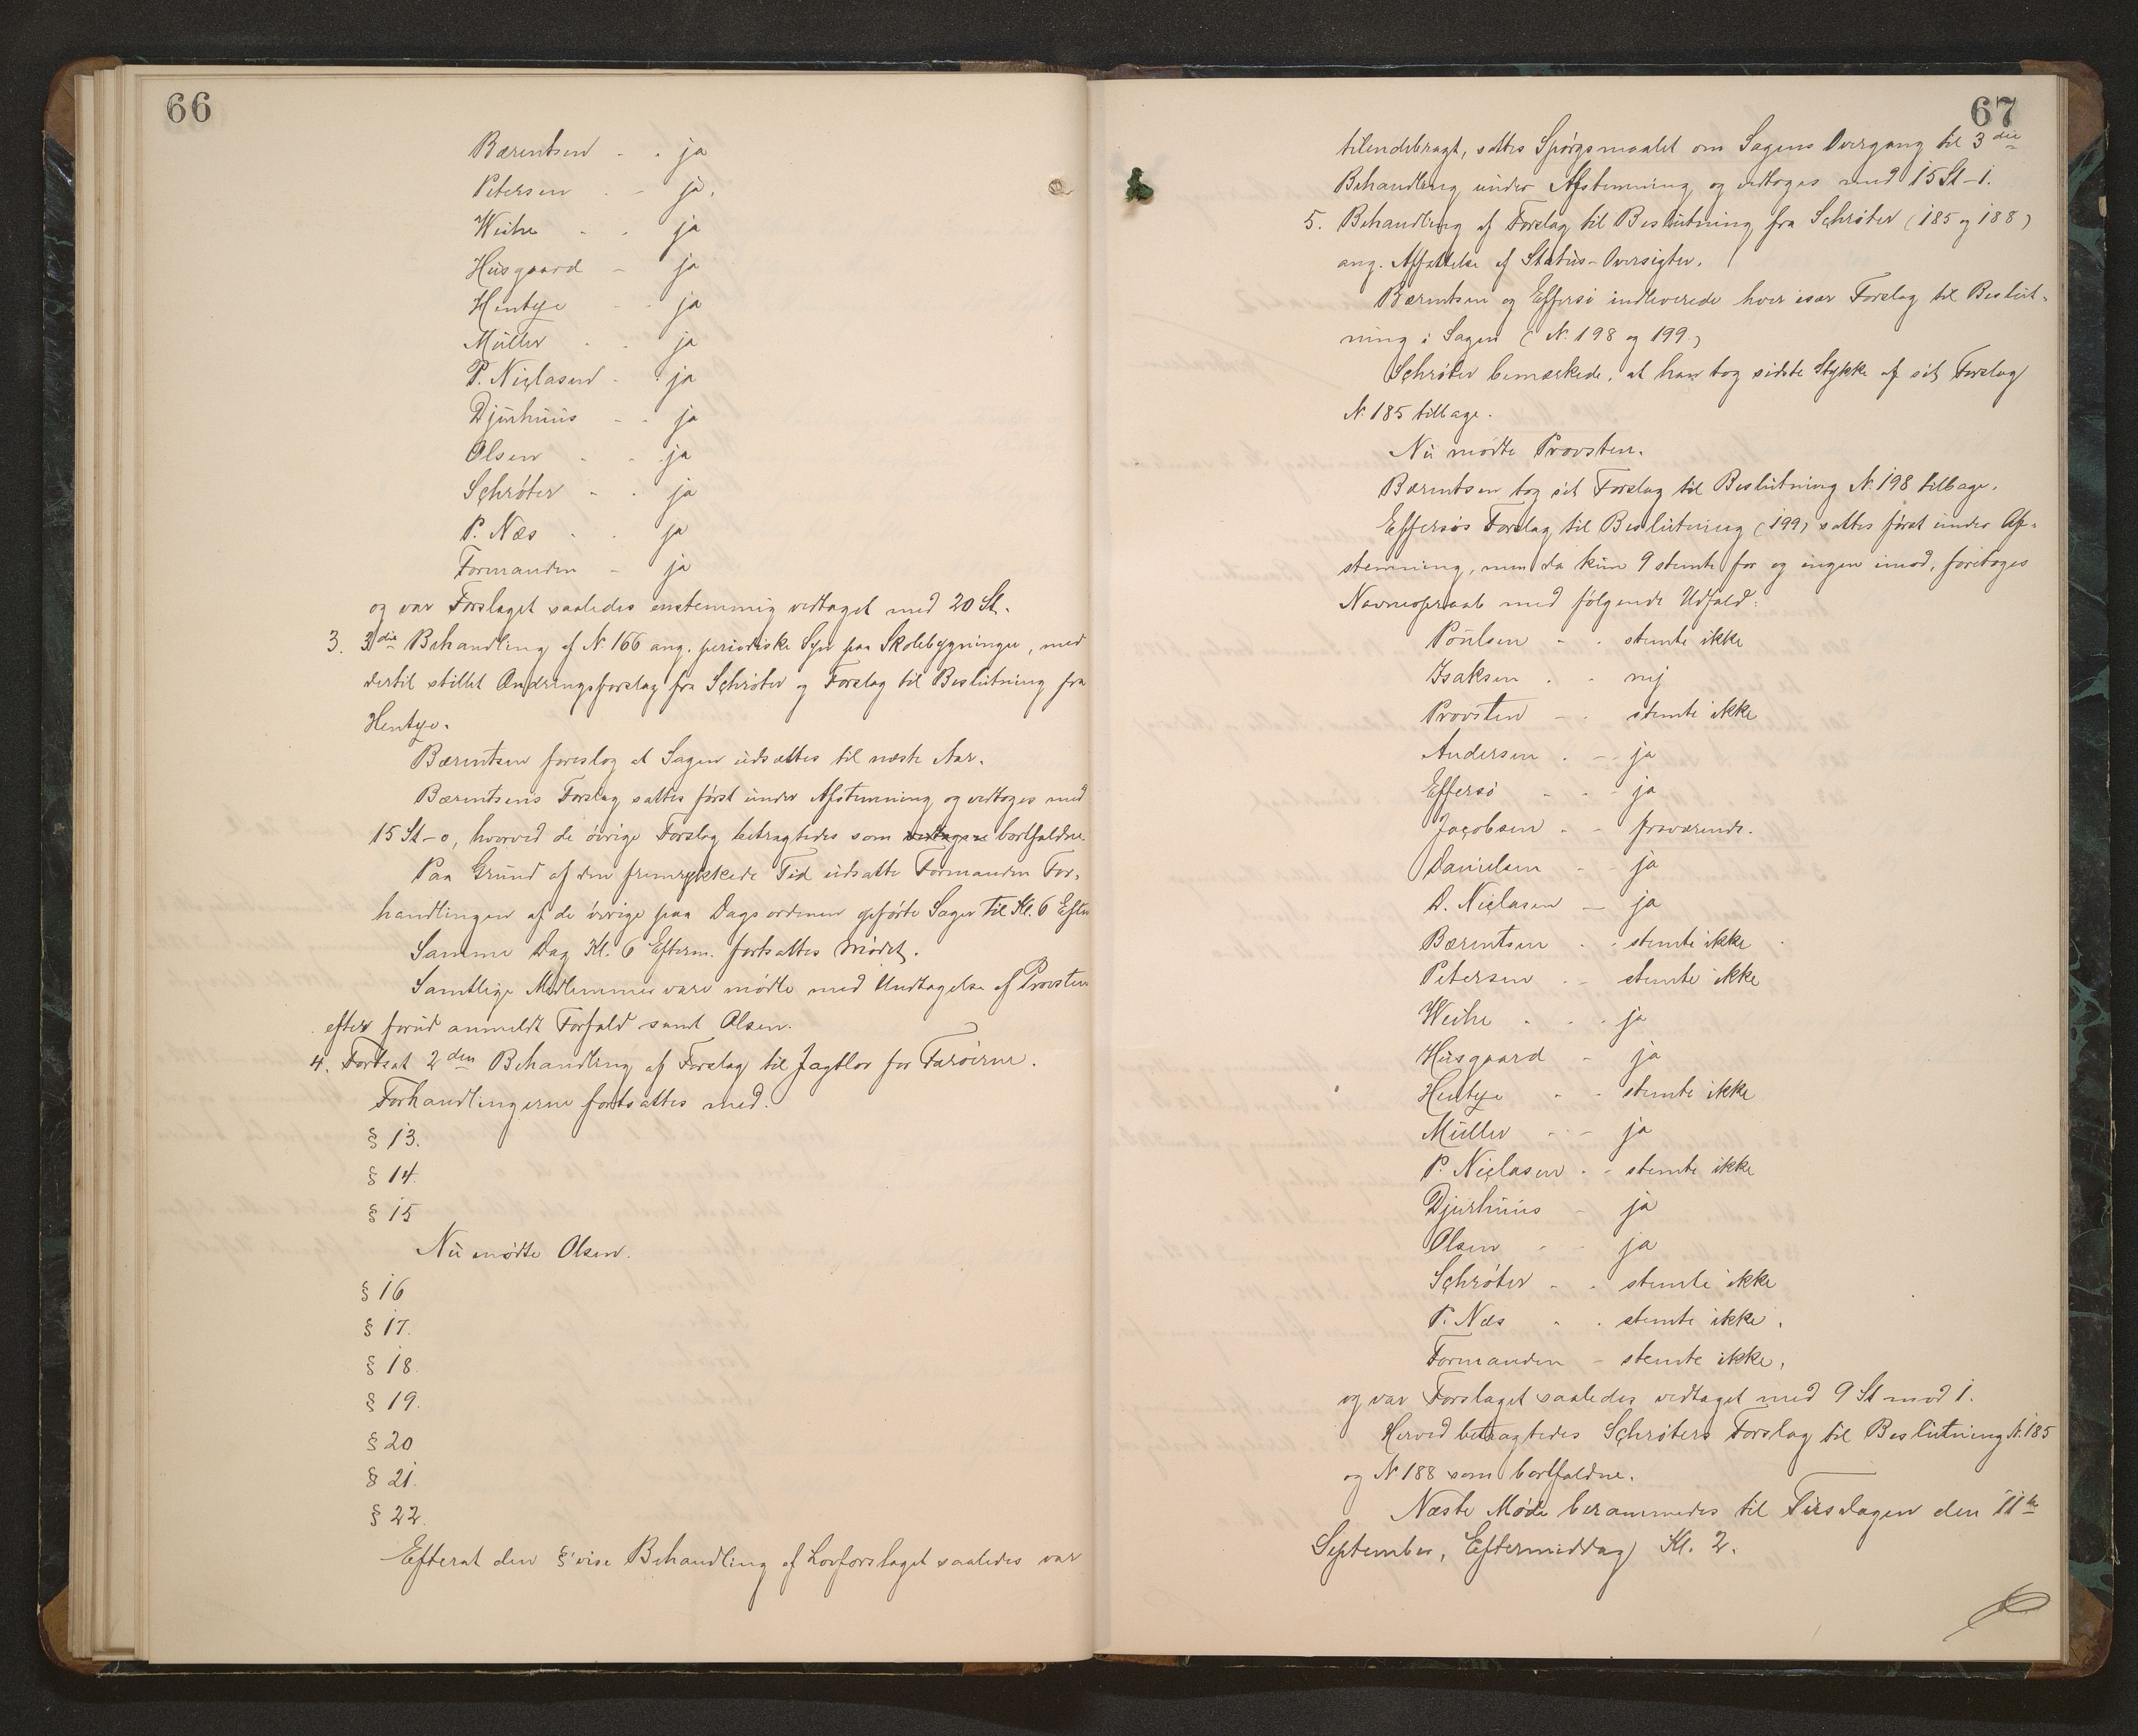 66
Bærentsen - - ja
Petersen - - ja.
Weihe - - ja
Husgaard - ja
Hentze - - ja
Müller - - ja
P. Niclasen - - ja
Djurhuus - - ja
Olsen - - ja
Schrøter - - ja
P. Næs - - ja
Formanden - ja
og var Forslaget saaledes enstemmig vedtaget med 20 St.
3. 3die Behandling af N. 166 ang. periodiske Syn paa Skolebygninger, med
dertil stillet Ændringsforslag fra Schrøter og Forslag til Beslutning fra
Hentze.
Bærentsen foreslog at Sagen udsættes til næste Aar.
Bærentsens Forslag sattes først under Afstemning og vedtoges med
15 St-0, hvorved de øvrige Forslag betragtedes som vedtagne bortfaldne.
Paa Grund af den fremrykkede Tid udsatte Formanden For-
handlingen af de øvrige paa Dagsordenen opførte Sager til Kl. 6 Eftm
Samme Dag Kl. 6 Efterm. fortsattes Mødet.
Samtlige Medlemmer vare mødte med Undtagelse af Provsten
efter forud anmeldt Forfald samt Olsen.
4. Fortsat 2den Behandling af Forslag til Jagtlov for Færøerne.
Forhandlingerne fortsattes med:
§ 13.
§ 14.
§ 15
Nu mødte Olsen.
§ 16
§ 17.
§ 18.
§ 19.
§ 20
§ 21.
§ 22.
Efterat den §'vise Behandling af Lovforslaget saaledes var
67
tilendebragt, sattes Spørgsmaalet om Sagens Overgang til 3die
Behandling under Afstemning og vedtoges med 15 St-1.
5. Behandling af Forslag til Beslutning fra Schrøter (185 og 188)
ang. Affattelse af Status-Oversigter.
Bærentsen og Effersø indleverede hver især Forslag til Beslut-
ning i Sagen (N. 198 og 199)
Schrøter bemærkede, at han tog sidste Stykke af sit Forslag
N. 185 tilbage.
Nu mødte Provsten.
Bærentsen tog sit Forslag til Beslutning N. 198 tilbage.
Effersøs Forslag til Beslutning (199) sattes først under Af-
stemning, men da kun 9 stemte for og ingen imod, foretoges
Navneopraab med følgende Udfald:
Poulsen - - stemte ikke
Isaksen - - nej
Provsten - - stemte ikke
Andersen - - ja
Effersø - - - ja
Jacobsen - - fraværende.
Danielsen - - ja
D. Niclasen - ja
Bærentsen - - stemte ikke
Petersen - - stemte ikke
Weihe - - - ja
Husgaard - ja
Hentze - - stemte ikke
Müller - - ja
P. Niclasen - - stemte ikke
Djurhuus - ja
Olsen - - ja
Schrøter - - stemte ikke
P. Næs - - stemte ikke.
Formanden - stemte ikke.
og var Forslaget saaledes vedtaget med 9 St mod 1.
Herved betragtedes Schrøters Forslag til Beslutning N. 185
og N 188 som bortfaldne.
Næste Møde berammedes til Tirsdagen den 11te
September, Eftermiddag Kl. 2.